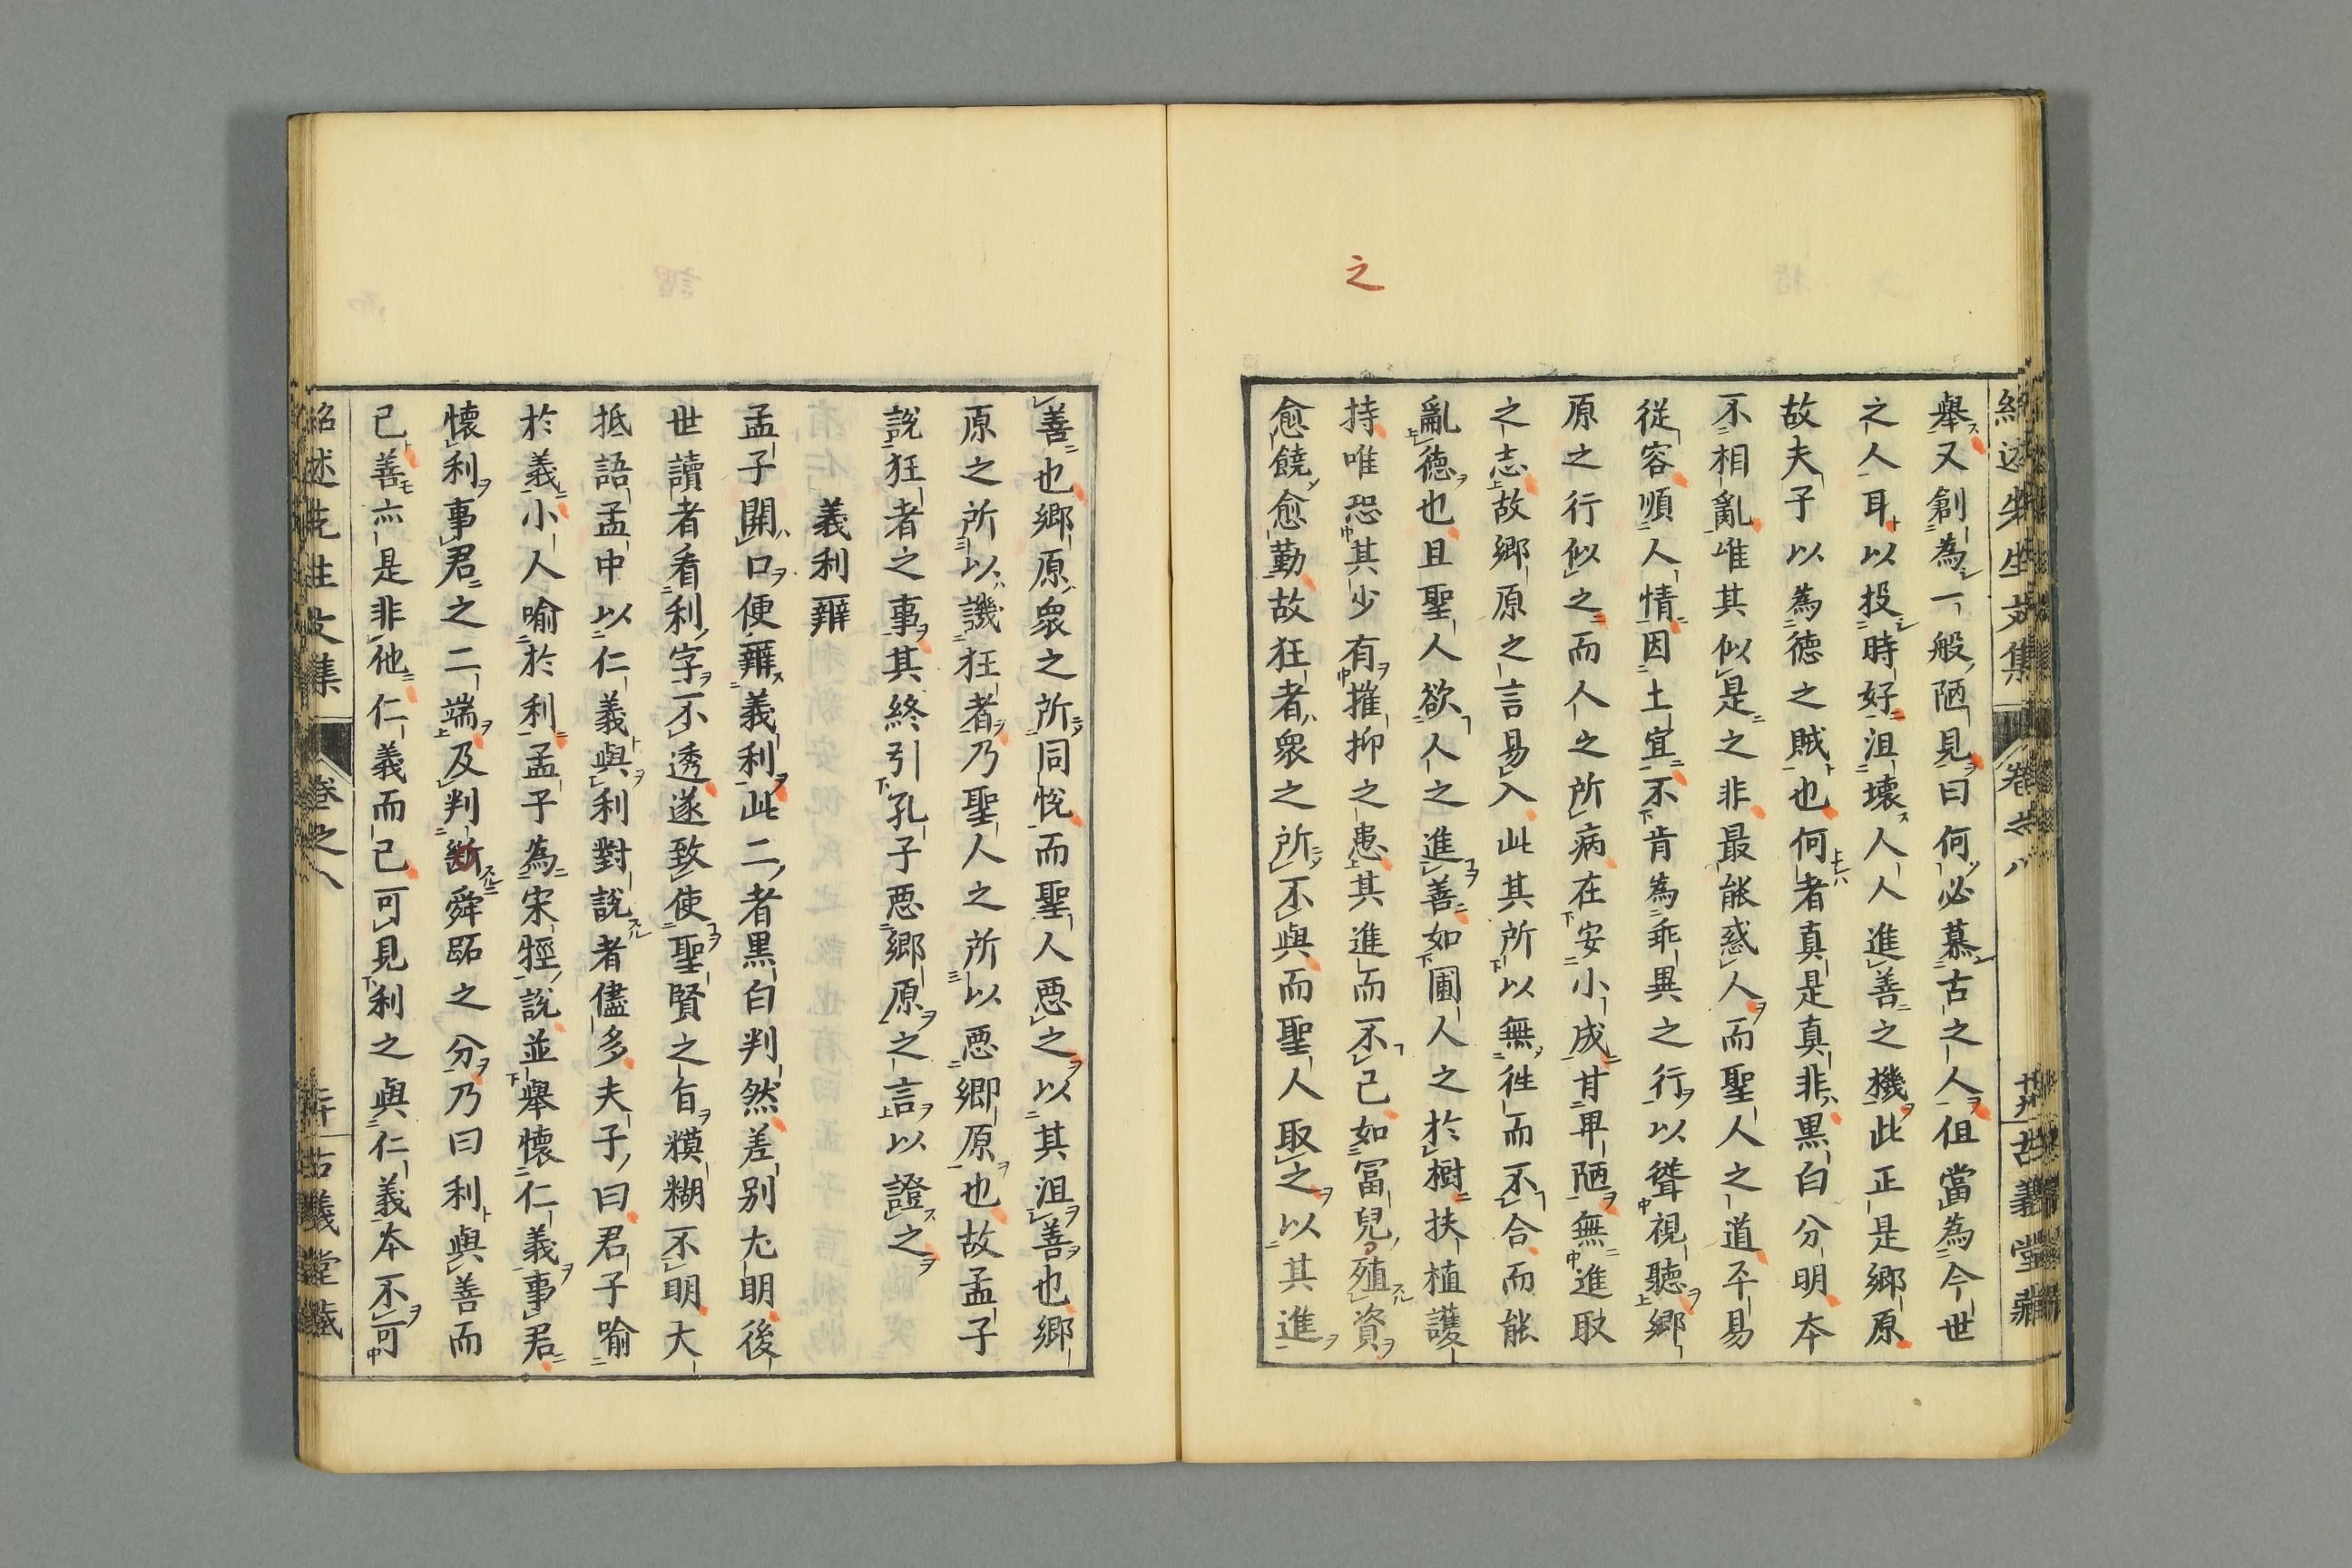 之
舉又創為一般陋見曰何必慕古之人但當為今世
之人耳以投時好沮壞人人進善之機此正是鄉原
故夫子以為德之賊也何者真是真非黒白分明本
不相亂唯其似是之非最能惑人而聖人之道平易
從容順人情因土宜不肯為乖異之行以聳視聽鄉
原之行似之而人之所病在安小成甘卑陋無進取
之志故鄉原之言易入此其所以無徃而不合而能
亂德也且聖人欲人之進善如圃人之於樹扶植護
持唯恐其少有摧抑之患其進而不已如冨兒殖資
愈饒愈勤故狂者衆之所不與而聖人取之以其進
善也鄉原衆之所同悅而聖人惡之以其沮善也鄉
原之所以譏狂者乃聖人之所以惡鄉原也故孟子
說狂者之事其終引孔子惡鄉原之言以證之
義利辨
孟子開口便辨義利此二者黒白判然差別尤明後
世讀者看利字不透遂致使聖賢之旨糢糊不明大
抵語孟中以仁義與利對說者儘多夫子曰君子喻
於義小人喻於利孟子為宋牼說並舉懷仁義事君
懷利事君之二端及判斷舜蹠之分乃曰利與善而
已善亦是非他仁義而已可見利之與仁義本不可
紹述先生文集
卷之八
古義堂藏